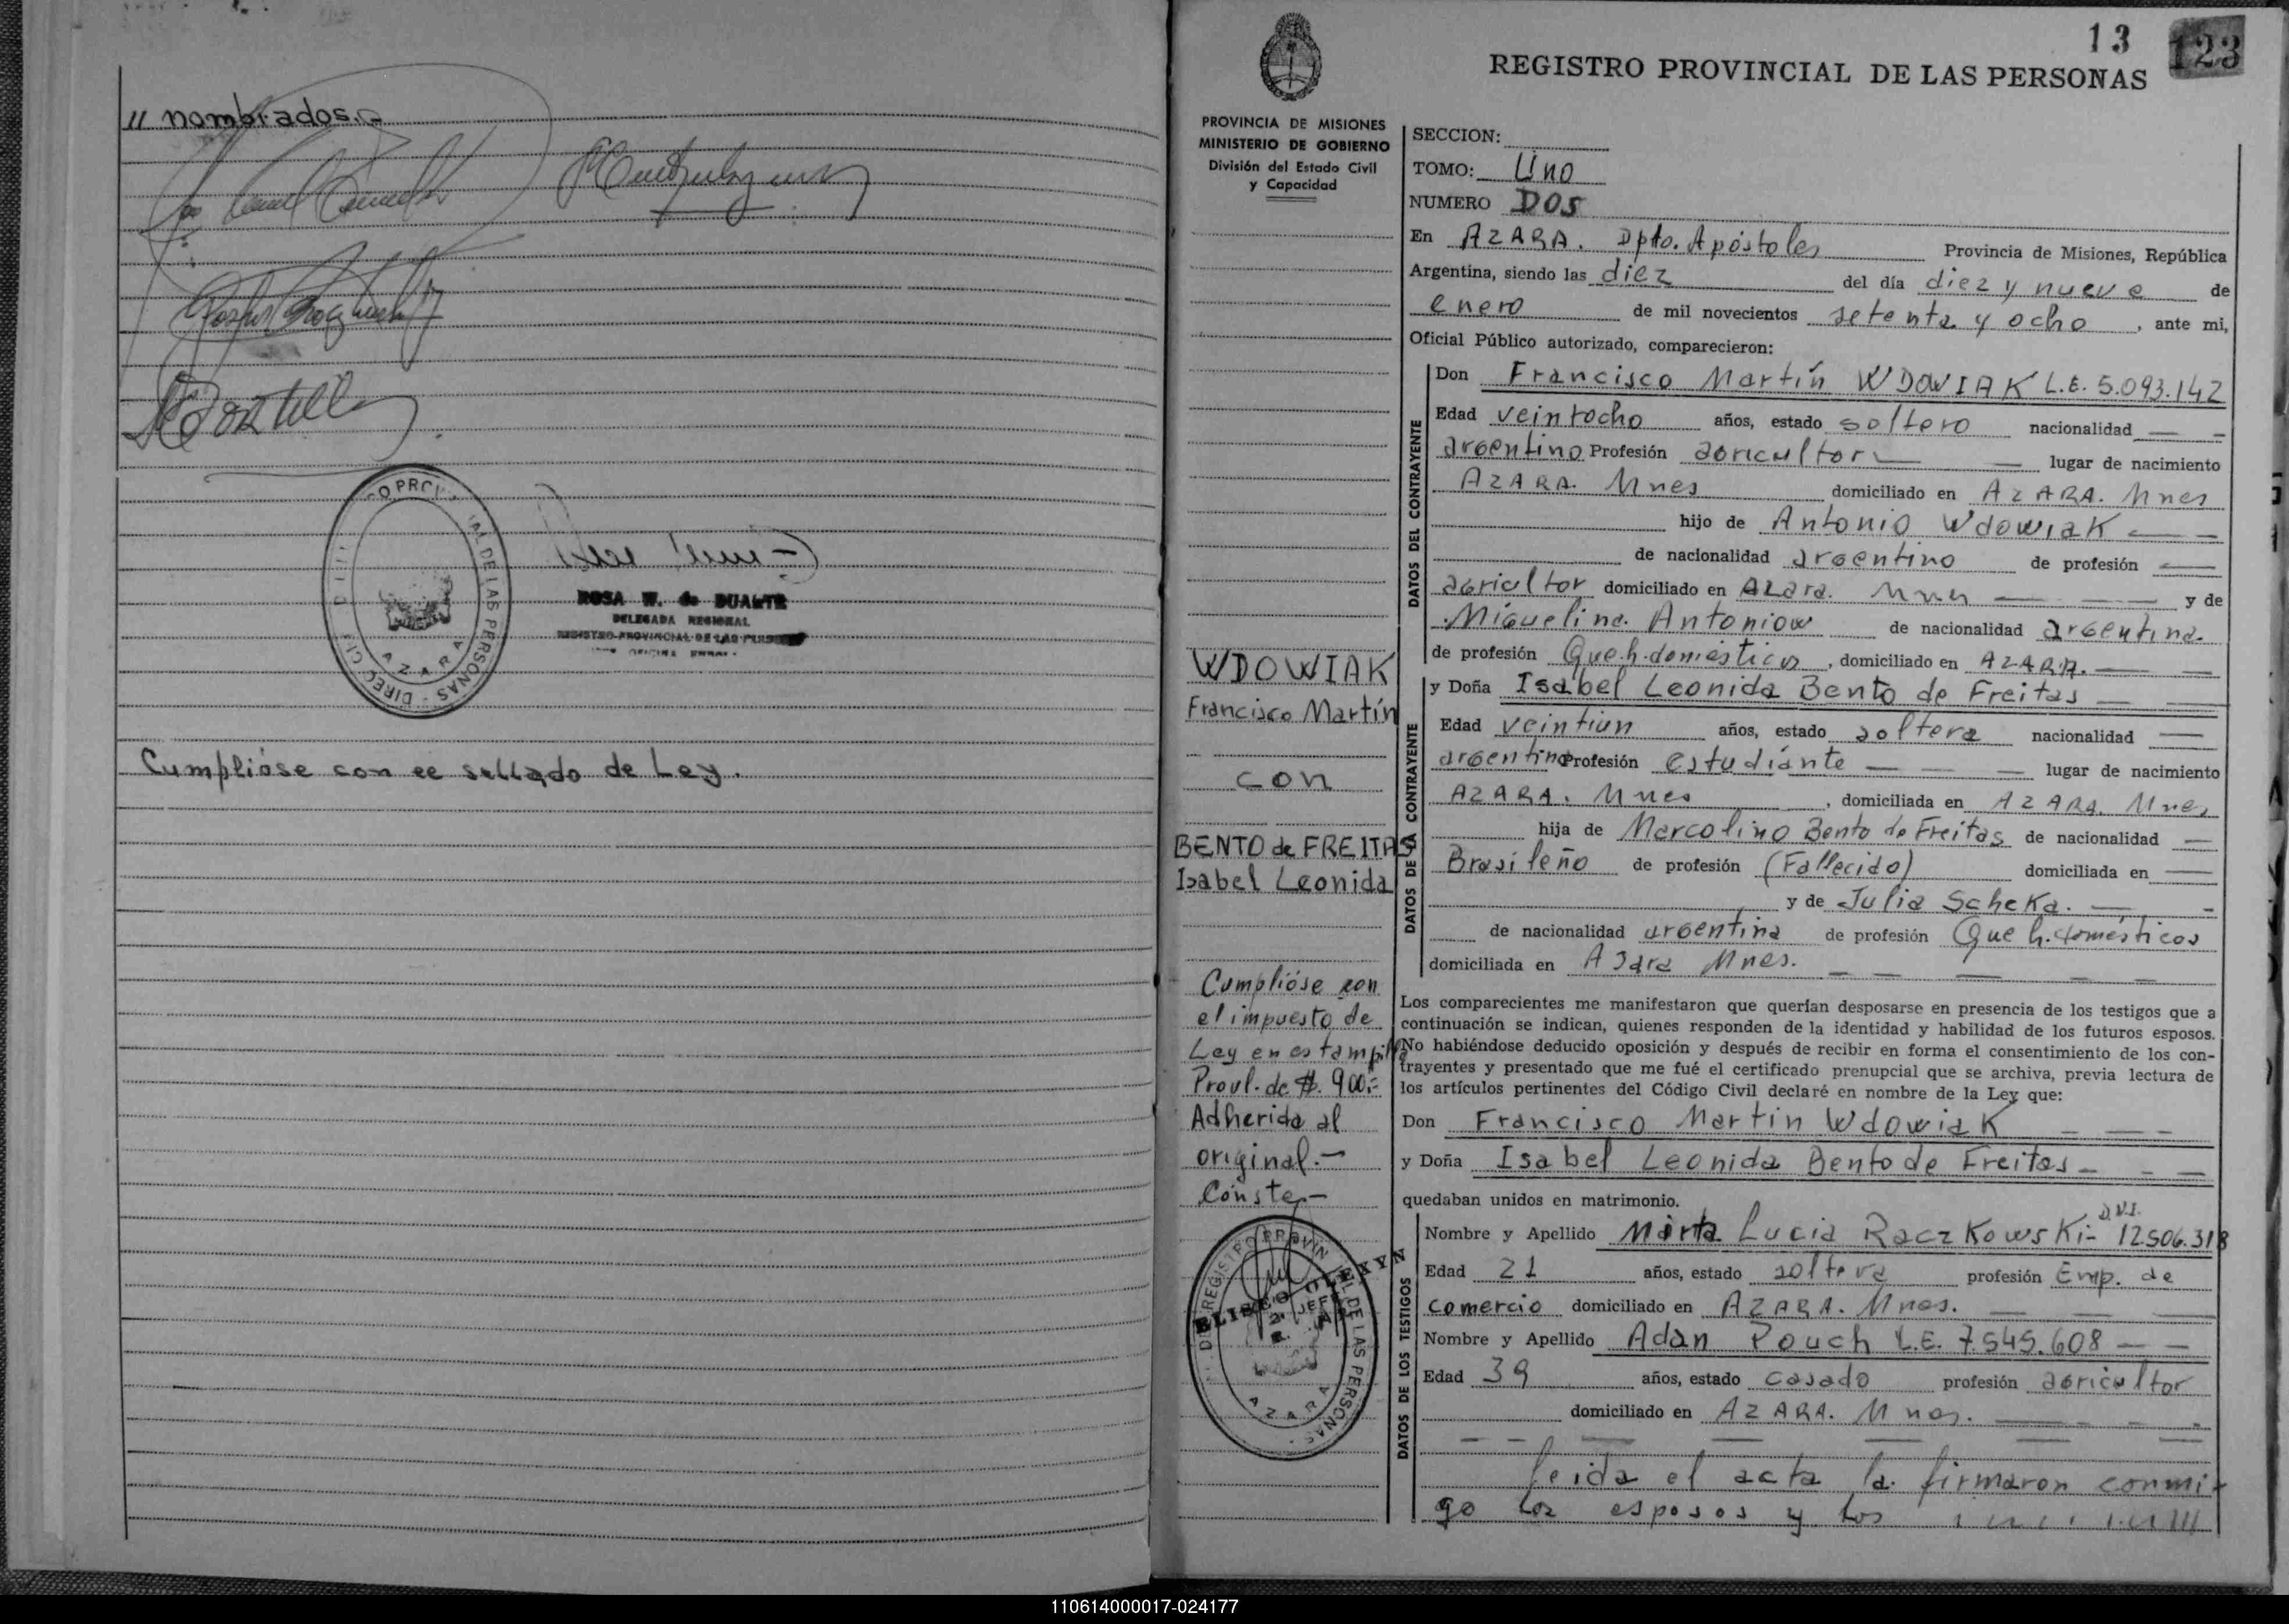 // nombrados.-
O PROV
IAL DE LAS PERSONAS - DIREC CIO
AZARA
ROSA W. de DUARTE
DELEGADA REGIONAL
REGISTRO PROVINCIAL DE LAS PERSONAS
Cumplióse con ee sellado de Ley.
13
123
REGISTRO PROVINCIAL DE LAS PERSONAS
PROVINCIA DE MISIONES
MINISTERIO DE GOBIERNO
División del Estado Civil
y Capacidad
WDOWIAK
Francisco Martín
con
BENTO de FREITAS
Isabel Leonida
Cumplióse con
el impuesto de
Ley en estampilla
Provl. de $. 900.-
Adherida al
original.-
Conste.-
REGISTRO PROVIN IAL DE LAS PERSONAS
ELISEO OLEXYN
JEFE
AZARA
SECCION:
TOMO: Uno
NUMERO DOS
En AZARA. Dpto. Apóstoles Provincia de Misiones, República
Argentina, siendo las diez del día diez y nueve de
enero de mil novecientos setenta y ocho, ante mi,
Oficial Público autorizado, comparecieron:
DATOS DEL CONTRAYENTE
Don Francisco Martín WDOWIAK L.E. 5.093.142
Edad veintocho años, estado soltero nacionalidad —
argentino Profesión agricultor — lugar de nacimiento
AZARA. Mnes domiciliado en AZARA. Mnes
hijo de Antonio Wdowiak —
de nacionalidad argentino de profesión —
agricultor domiciliado en Azara. Mnes — y de
Miguelina Antoniow de nacionalidad argentina.
de profesión Que h. domésticos, domiciliado en AZARA. —
DATOS DE LA CONTRAYENTE
y Doña Isabel Leonida Bento de Freitas —
Edad veintiun años, estado soltera nacionalidad —
argentina Profesión estudiante — lugar de nacimiento
AZARA. Mnes, domiciliada en AZARA. Mnes
hija de Marcolino Bento de Freitas de nacionalidad —
Brasileño de profesión (Fallecido) domiciliada en —
y de Julia Scheka. —
de nacionalidad argentina de profesión Que h. domésticos
domiciliada en Azara Mnes. —
Los comparecientes me manifestaron que querían desposarse en presencia de los testigos que a
continuación se indican, quienes responden de la identidad y habilidad de los futuros esposos.
No habiéndose deducido oposición y después de recibir en forma el consentimiento de los con-
trayentes y presentado que me fué el certificado prenupcial que se archiva, previa lectura de
los artículos pertinentes del Código Civil declaré en nombre de la Ley que:
Don Francisco Martin Wdowiak —
y Doña Isabel Leonida Bento de Freitas —
quedaban unidos en matrimonio.
DATOS DE LOS TESTIGOS
Nombre y Apellido Mirta Lucia Raczkowski- D.N.I. 12.506.318
Edad 21 años, estado soltera profesión Emp. de
comercio domiciliado en AZARA. Mnes. —
Nombre y Apellido Adan Pouch L.E. 7.545.608 —
Edad 39 años, estado casado profesión agricultor
domiciliado en AZARA. Mnes. —
Leida el acta la firmaron conmi-
go los esposos y los
110614000017-024177